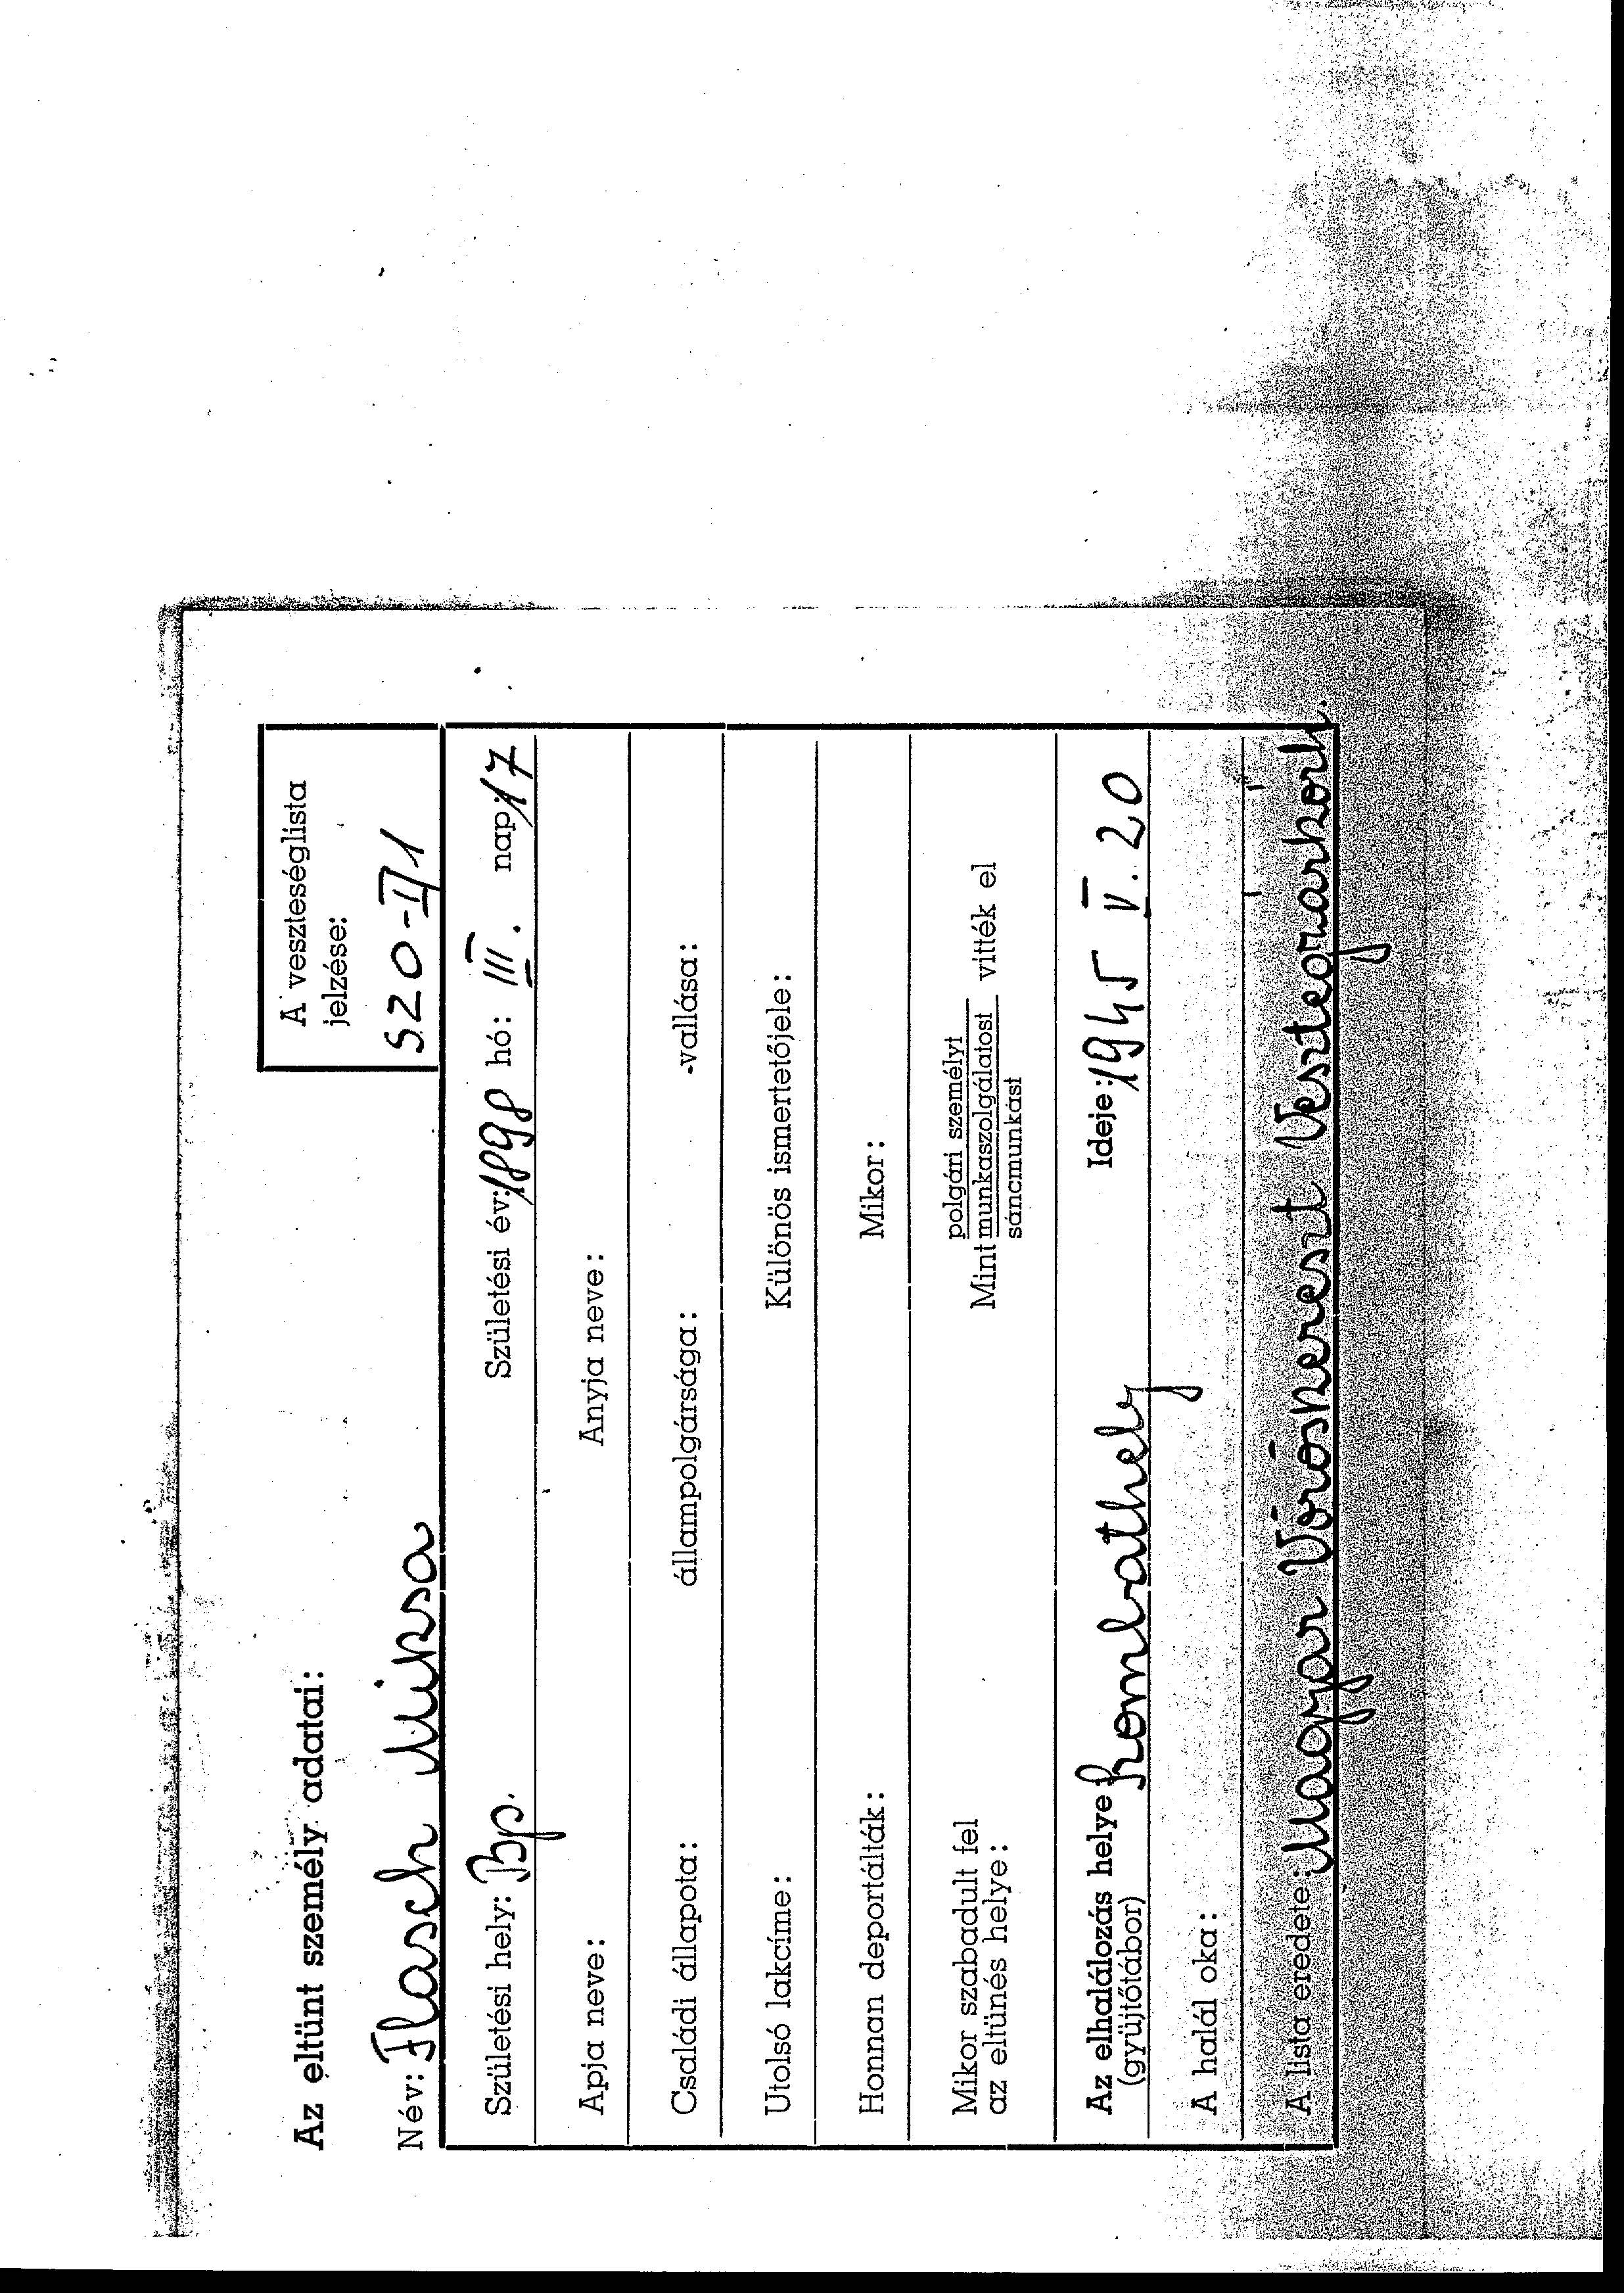 Az eltünt személy adatai:
A veszteséglista
jelzése:
SZO-II/1
Név: Flasch Miksa
Születési hely: Bp. Születési év: 1898 hó: III. nap: 17
Apja neve: Anyja neve:
Családi állapota: állampolgársága: -vallása:
Utolsó lakcíme: Különös ismertetőjele:
Honnan deportálták: Mikor:
Mikor szabadult fel
az eltünés helye:
polgári személyt
Mint munkaszolgálatost vitték el
sáncmunkást
Az elhalálozás helye: Szombathely Ideje: 1945 V. 20
(gyüjtőtábor)
A halál oka:
A lista eredete: Magyar Vöröskereszt